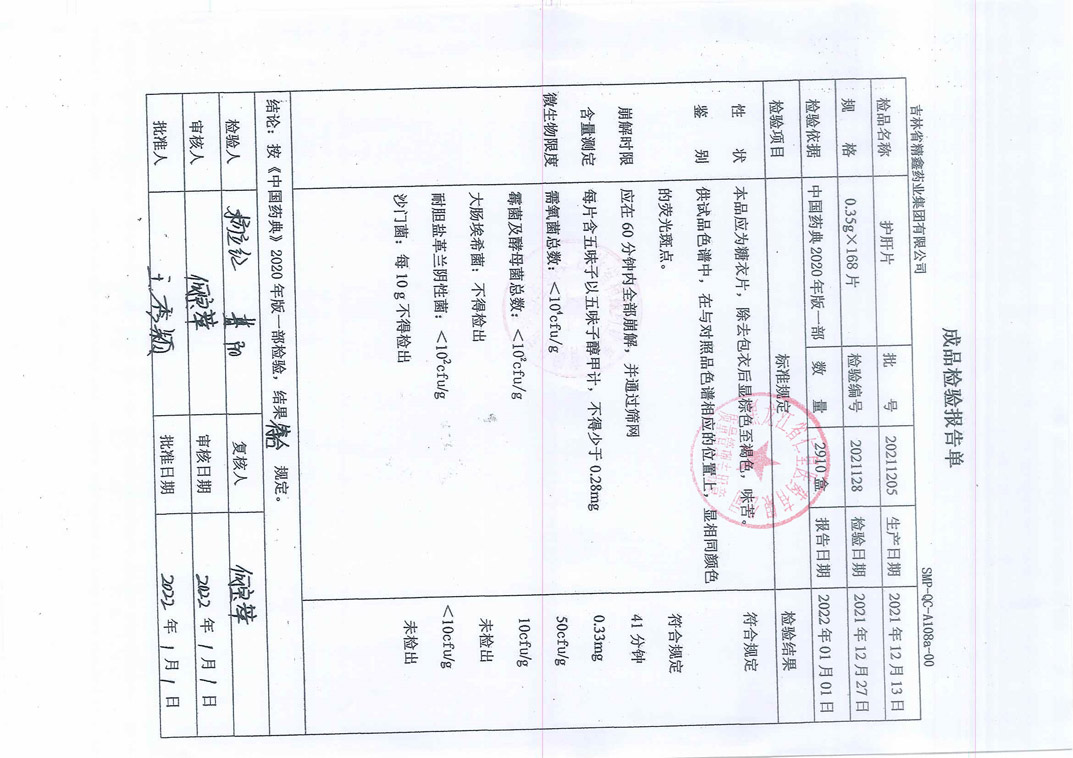 成品检验报告单
吉林省精鑫药业集团有限公司 SMP-QC-A108a-00
检品名称 护肝片 批 号 20211205 生产日期 2021年12月13日
规 格 0.35g×168片 检验编号 2021128 检验日期 2021年12月27日
检验依据 中国药典2020年版一部 数 量 2910盒 报告日期 2022年01月01日
检验项目 标准规定 检验结果
性 状 本品应为糖衣片，除去包衣后显棕色至褐色，味苦。 符合规定
鉴 别 供试品色谱中，在与对照品色谱相应的位置上，显相同颜色
的荧光斑点。 符合规定
崩解时限 应在60分钟内全部崩解，并通过筛网 41分钟
含量测定 每片含五味子以五味子醇甲计，不得少于0.28mg 0.33mg
微生物限度 需氧菌总数：<10⁴cfu/g 50cfu/g
霉菌及酵母菌总数：<10²cfu/g 10cfu/g
大肠埃希菌：不得检出 未检出
耐胆盐革兰阴性菌：<10²cfu/g <10cfu/g
沙门菌：每10g不得检出 未检出
结论：按《中国药典》2020年版一部检验，结果符合 规定。
检验人 复核人
审核人 审核日期 2022年1月1日
批准人 批准日期 2022年1月1日